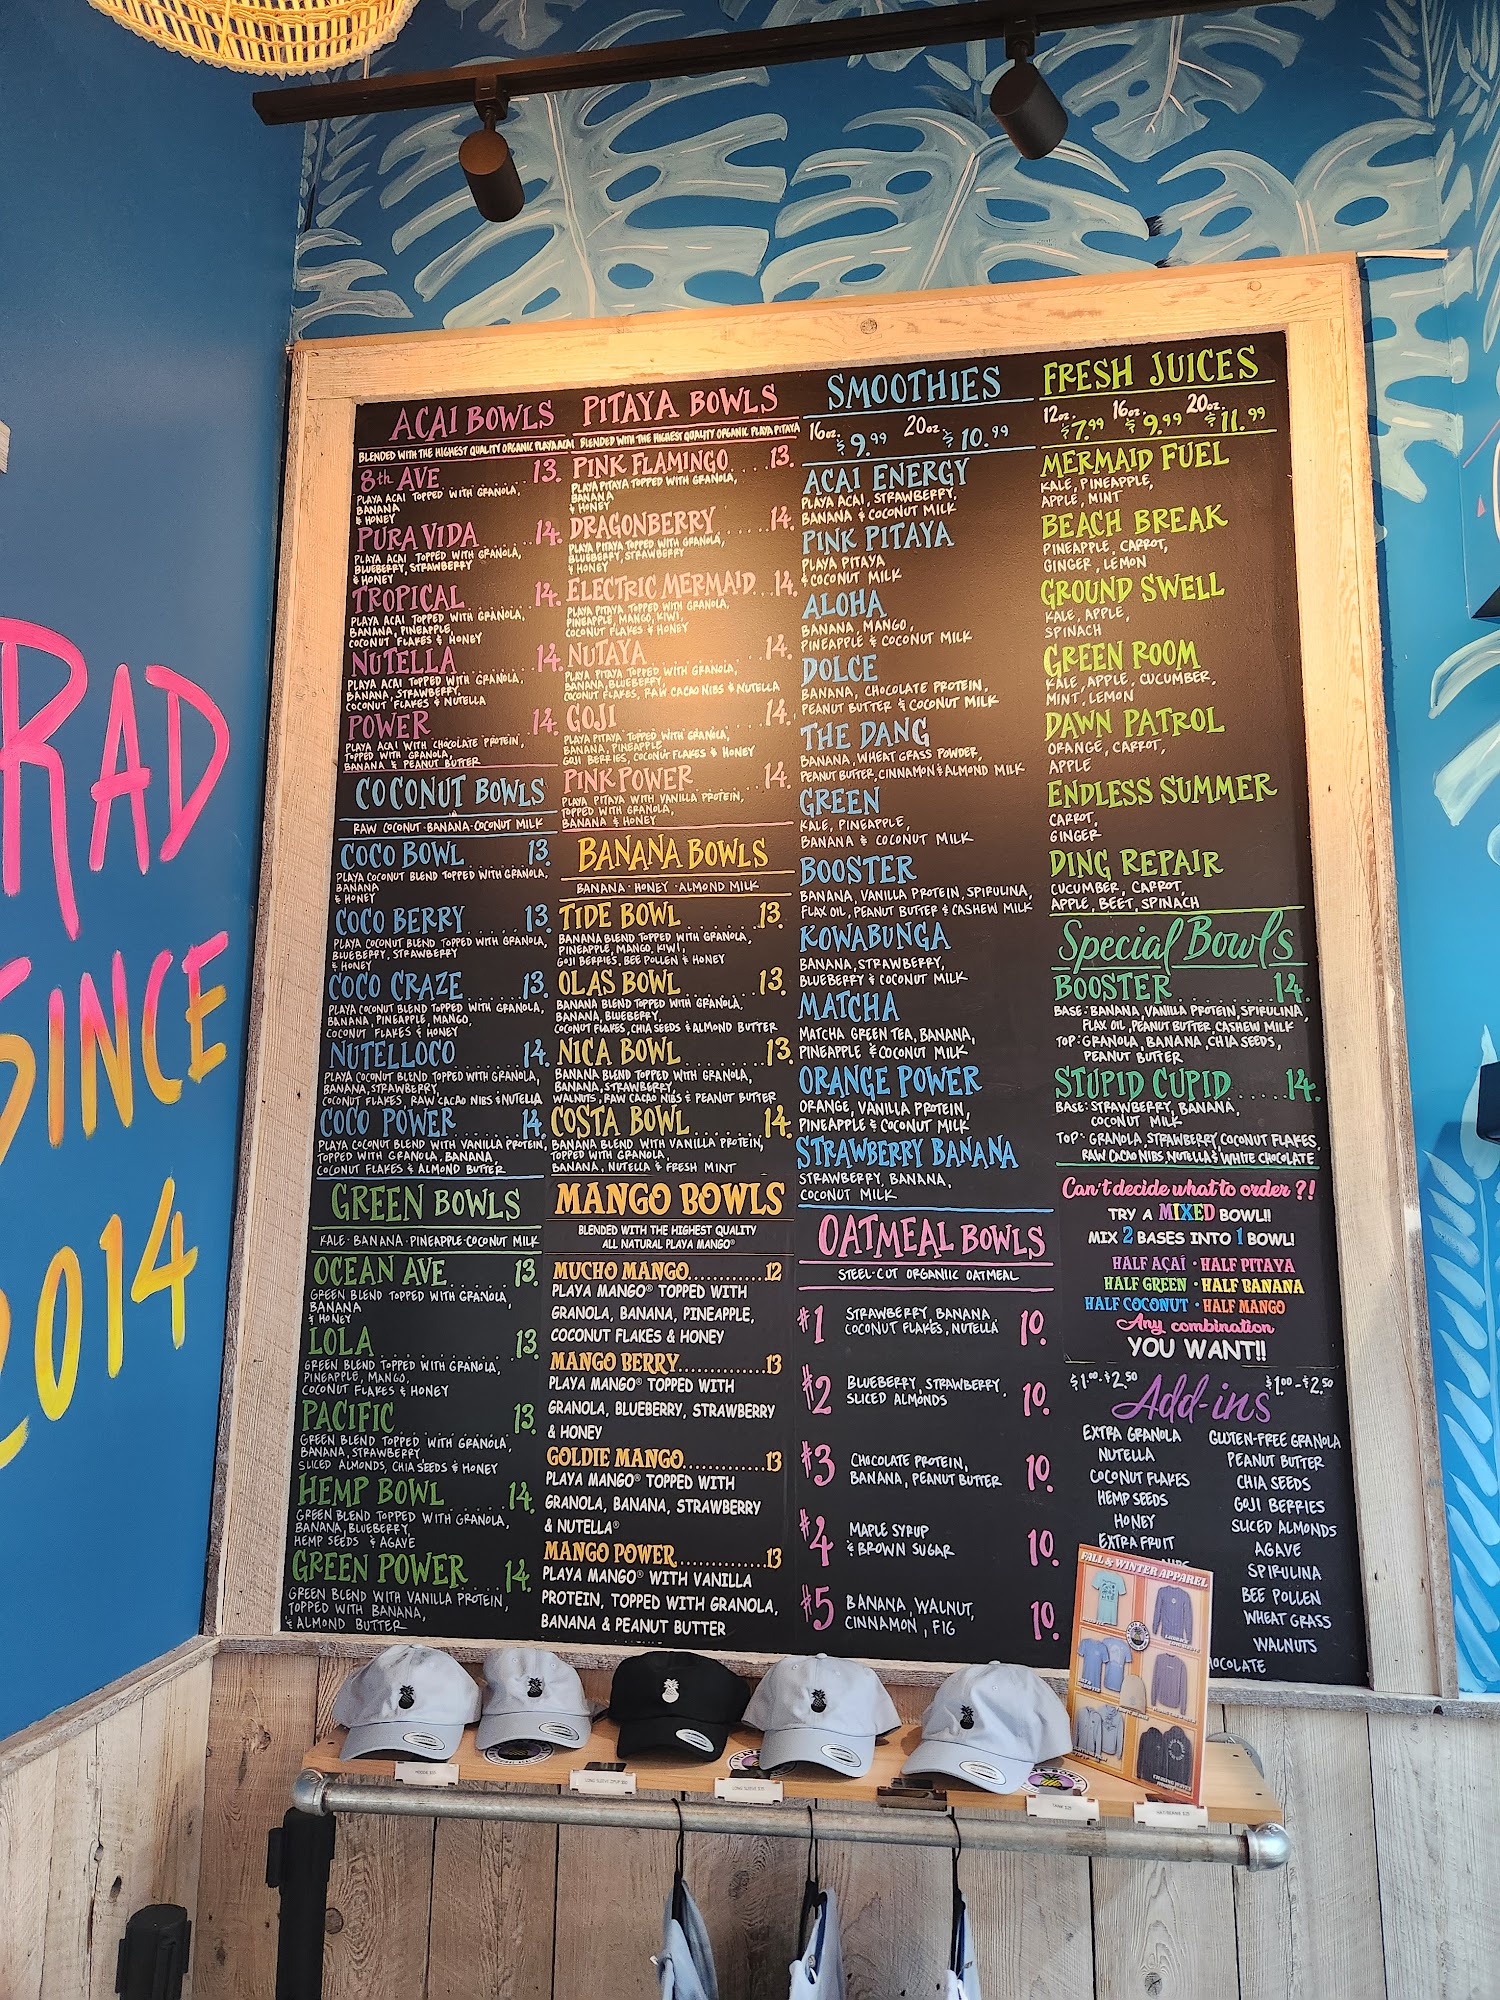 RAD
SINCE
2014
AÇAI BOWLS
BLENDED WITH THE HIGHEST QUALITY ORGANIC PLAYA ACAI
8th AVE 13.
PLAYA ACAI TOPPED WITH GRANOLA,
BANANA
& HONEY
PURA VIDA 14.
PLAYA ACAI TOPPED WITH GRANOLA,
BLUEBERRY, STRAWBERRY
& HONEY
TROPICAL 14.
PLAYA ACAI TOPPED WITH GRANOLA,
BANANA, PINEAPPLE,
COCONUT FLAKES & HONEY
NUTELLA 14.
PLAYA ACAI TOPPED WITH GRANOLA,
BANANA, STRAWBERRY,
COCONUT FLAKES & NUTELLA
POWER 14.
PLAYA ACAI WITH CHOCOLATE PROTEIN,
TOPPED WITH GRANOLA,
BANANA & PEANUT BUTTER
COCONUT BOWLS
RAW COCONUT·BANANA·COCONUT MILK
COCO BOWL 13.
PLAYA COCONUT BLEND TOPPED WITH GRANOLA,
BANANA
& HONEY
COCO BERRY 13.
PLAYA COCONUT BLEND TOPPED WITH GRANOLA,
BLUEBERRY, STRAWBERRY
& HONEY
COCO CRAZE 13.
PLAYA COCONUT BLEND TOPPED WITH GRANOLA,
BANANA, PINEAPPLE, MANGO,
COCONUT FLAKES & HONEY
NUTELLOCO 14.
PLAYA COCONUT BLEND TOPPED WITH GRANOLA,
BANANA, STRAWBERRY
COCONUT FLAKES, RAW CACAO NIBS & NUTELLA
COCO POWER 14.
PLAYA COCONUT BLEND WITH VANILLA PROTEIN,
TOPPED WITH GRANOLA, BANANA,
COCONUT FLAKES & ALMOND BUTTER
GREEN BOWLS
KALE·BANANA·PINEAPPLE·COCONUT MILK
OCEAN AVE 13.
GREEN BLEND TOPPED WITH GRANOLA,
BANANA
& HONEY
LOLA 13.
GREEN BLEND TOPPED WITH GRANOLA,
PINEAPPLE, MANGO,
COCONUT FLAKES & HONEY
PACIFIC 13.
GREEN BLEND TOPPED WITH GRANOLA,
BANANA, STRAWBERRY,
SLICED ALMONDS, CHIA SEEDS & HONEY
HEMP BOWL 14.
GREEN BLEND TOPPED WITH GRANOLA,
BANANA, BLUEBERRY,
HEMP SEEDS & AGAVE
GREEN POWER 14.
GREEN BLEND WITH VANILLA PROTEIN,
TOPPED WITH BANANA,
& ALMOND BUTTER
PITAYA BOWLS
BLENDED WITH THE HIGHEST QUALITY ORGANIC PLAYA PITAYA
PINK FLAMINGO 13.
PLAYA PITAYA TOPPED WITH GRANOLA,
BANANA
& HONEY
DRAGONBERRY 14.
PLAYA PITAYA TOPPED WITH GRANOLA,
BLUEBERRY, STRAWBERRY
& HONEY
ELECTRIC MERMAID 14.
PLAYA PITAYA TOPPED WITH GRANOLA,
PINEAPPLE, MANGO, KIWI,
COCONUT FLAKES & HONEY
NUTAYA 14.
PLAYA PITAYA TOPPED WITH GRANOLA,
BANANA, BLUEBERRY,
COCONUT FLAKES, RAW CACAO NIBS & NUTELLA
GOJI 14.
PLAYA PITAYA TOPPED WITH GRANOLA,
BANANA, PINEAPPLE,
GOJI BERRIES, COCONUT FLAKES & HONEY
PINK POWER 14.
PLAYA PITAYA WITH VANILLA PROTEIN,
TOPPED WITH GRANOLA,
BANANA & HONEY
BANANA BOWLS
BANANA·HONEY·ALMOND MILK
TIDE BOWL 13.
BANANA BLEND TOPPED WITH GRANOLA,
PINEAPPLE, MANGO, KIWI,
GOJI BERRIES, BEE POLLEN & HONEY
OLAS BOWL 13.
BANANA BLEND TOPPED WITH GRANOLA,
BANANA, BLUEBERRY,
COCONUT FLAKES, CHIA SEEDS & ALMOND BUTTER
NICA BOWL 13.
BANANA BLEND TOPPED WITH GRANOLA,
BANANA, STRAWBERRY,
WALNUTS, RAW CACAO NIBS & PEANUT BUTTER
COSTA BOWL 14.
BANANA BLEND WITH VANILLA PROTEIN,
TOPPED WITH GRANOLA,
BANANA, NUTELLA & FRESH MINT
MANGO BOWLS
BLENDED WITH THE HIGHEST QUALITY
ALL NATURAL PLAYA MANGO®
MUCHO MANGO............12
PLAYA MANGO® TOPPED WITH
GRANOLA, BANANA, PINEAPPLE,
COCONUT FLAKES & HONEY
MANGO BERRY............13
PLAYA MANGO® TOPPED WITH
GRANOLA, BLUEBERRY, STRAWBERRY
& HONEY
GOLDIE MANGO............13
PLAYA MANGO® TOPPED WITH
GRANOLA, BANANA, STRAWBERRY
& NUTELLA®
MANGO POWER............13
PLAYA MANGO® WITH VANILLA
PROTEIN, TOPPED WITH GRANOLA,
BANANA & PEANUT BUTTER
SMOOTHIES
16oz. $9.99 20oz. $10.99
ACAI ENERGY
PLAYA ACAI, STRAWBERRY,
BANANA & COCONUT MILK
PINK PITAYA
PLAYA PITAYA
& COCONUT MILK
ALOHA
BANANA, MANGO,
PINEAPPLE & COCONUT MILK
DOLCE
BANANA, CHOCOLATE PROTEIN,
PEANUT BUTTER & COCONUT MILK
THE DANG
BANANA, WHEAT GRASS POWDER,
PEANUT BUTTER, CINNAMON & ALMOND MILK
GREEN
KALE, PINEAPPLE,
BANANA & COCONUT MILK
BOOSTER
BANANA, VANILLA PROTEIN, SPIRULINA,
FLAX OIL, PEANUT BUTTER & CASHEW MILK
KOWABUNGA
BANANA, STRAWBERRY,
BLUEBERRY & COCONUT MILK
MATCHA
MATCHA GREEN TEA, BANANA,
PINEAPPLE & COCONUT MILK
ORANGE POWER
ORANGE, VANILLA PROTEIN,
PINEAPPLE & COCONUT MILK
STRAWBERRY BANANA
STRAWBERRY, BANANA,
COCONUT MILK
OATMEAL BOWLS
STEEL-CUT ORGANIIC OATMEAL
#1 STRAWBERRY, BANANA 10.
COCONUT FLAKES, NUTELLA
#2 BLUEBERRY, STRAWBERRY, 10.
SLICED ALMONDS
#3 CHOCOLATE PROTEIN, 10.
BANANA, PEANUT BUTTER
#4 MAPLE SYRUP 10.
& BROWN SUGAR
#5 BANANA, WALNUT, 10.
CINNAMON, FIG
FRESH JUICES
12oz. $7.99 16oz. $9.99 20oz. $11.99
MERMAID FUEL
KALE, PINEAPPLE,
APPLE, MINT
BEACH BREAK
PINEAPPLE, CARROT,
GINGER, LEMON
GROUND SWELL
KALE, APPLE,
SPINACH
GREEN ROOM
KALE, APPLE, CUCUMBER,
MINT, LEMON
DAWN PATROL
ORANGE, CARROT,
APPLE
ENDLESS SUMMER
CARROT,
GINGER
DING REPAIR
CUCUMBER, CARROT,
APPLE, BEET, SPINACH
Special Bowls
BOOSTER 14.
BASE: BANANA, VANILLA PROTEIN, SPIRULINA,
FLAX OIL, PEANUT BUTTER, CASHEW MILK
TOP: GRANOLA, BANANA, CHIA SEEDS,
PEANUT BUTTER
STUPID CUPID 14.
BASE: STRAWBERRY, BANANA,
COCONUT MILK
TOP: GRANOLA, STRAWBERRY, COCONUT FLAKES,
RAW CACAO NIBS, NUTELLA & WHITE CHOCOLATE
Can't decide what to order?!
TRY A MIXED BOWL!!
MIX 2 BASES INTO 1 BOWL!
HALF AÇAÍ · HALF PITAYA
HALF GREEN · HALF BANANA
HALF COCONUT · HALF MANGO
Any combination
YOU WANT!!
$1.00-$2.50 Add-ins $1.00-$2.50
EXTRA GRANOLA
NUTELLA
COCONUT FLAKES
HEMP SEEDS
HONEY
EXTRA FRUIT
GLUTEN-FREE GRANOLA
PEANUT BUTTER
CHIA SEEDS
GOJI BERRIES
SLICED ALMONDS
AGAVE
SPIRULINA
BEE POLLEN
WHEAT GRASS
WALNUTS
OCOLATE
FALL & WINTER APPAREL